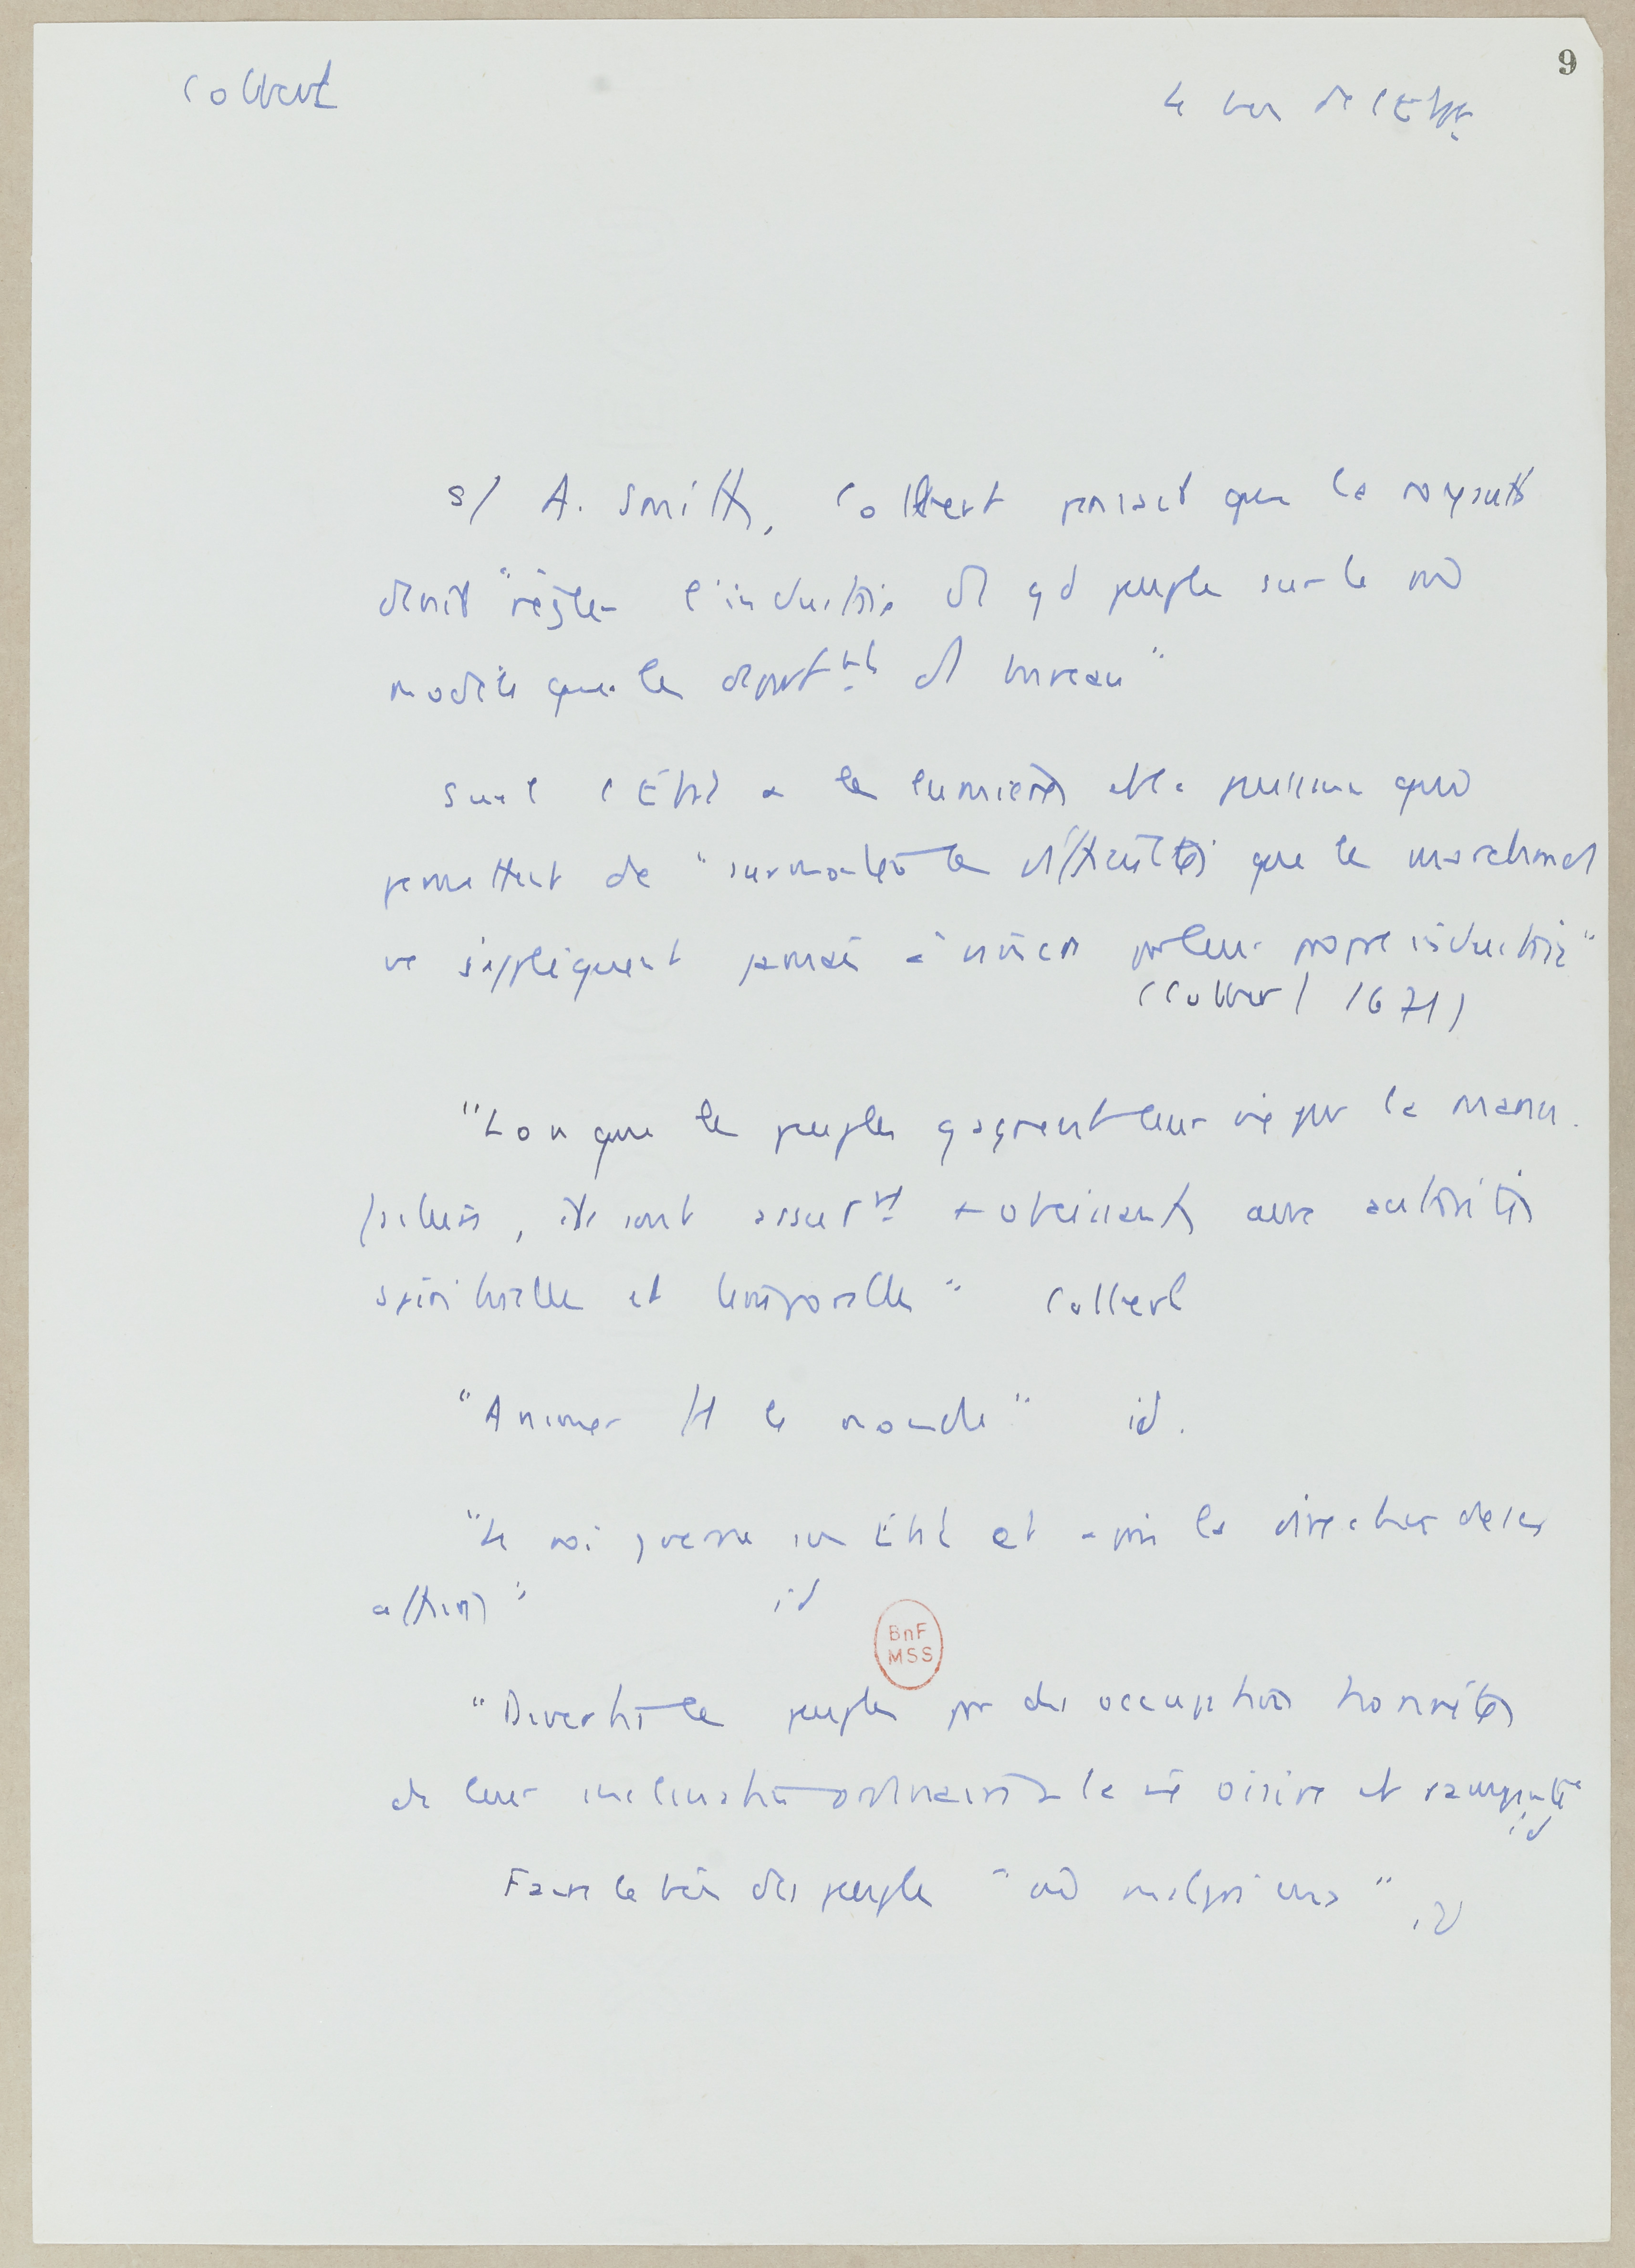 9
Colbert
Le bien de l'Etat
s/ A. Smith, Colbert pensait que la royauté
devait "régler l'industrie d' gd peuple sur le m̂
modèle que les dépt^mts d' bureau"
Seul l'État a les lumières et la puissance qui
permettent de "surmonter les difficultés que les marchands
ne s'appliquent jamais à vaincre par leur propre industrie"
(Colbert 1671)
"Lorsque les peuples gagnent leur vie par la manu.
factures, ils sont assur^mt + obéissants aux autorités
spirituelles et temporelles" Colbert
"Animer tt le monde" id.
"Le roi gouverne son État et a pris la direction de ses
affaires" id
BnF
MSS
"Divertir les peuples par des occupations honnêtes
de leur inclination ordinaire à la vie oisive et rampante"
id
Faire le bien des peuples "m̂ malgré eux" id